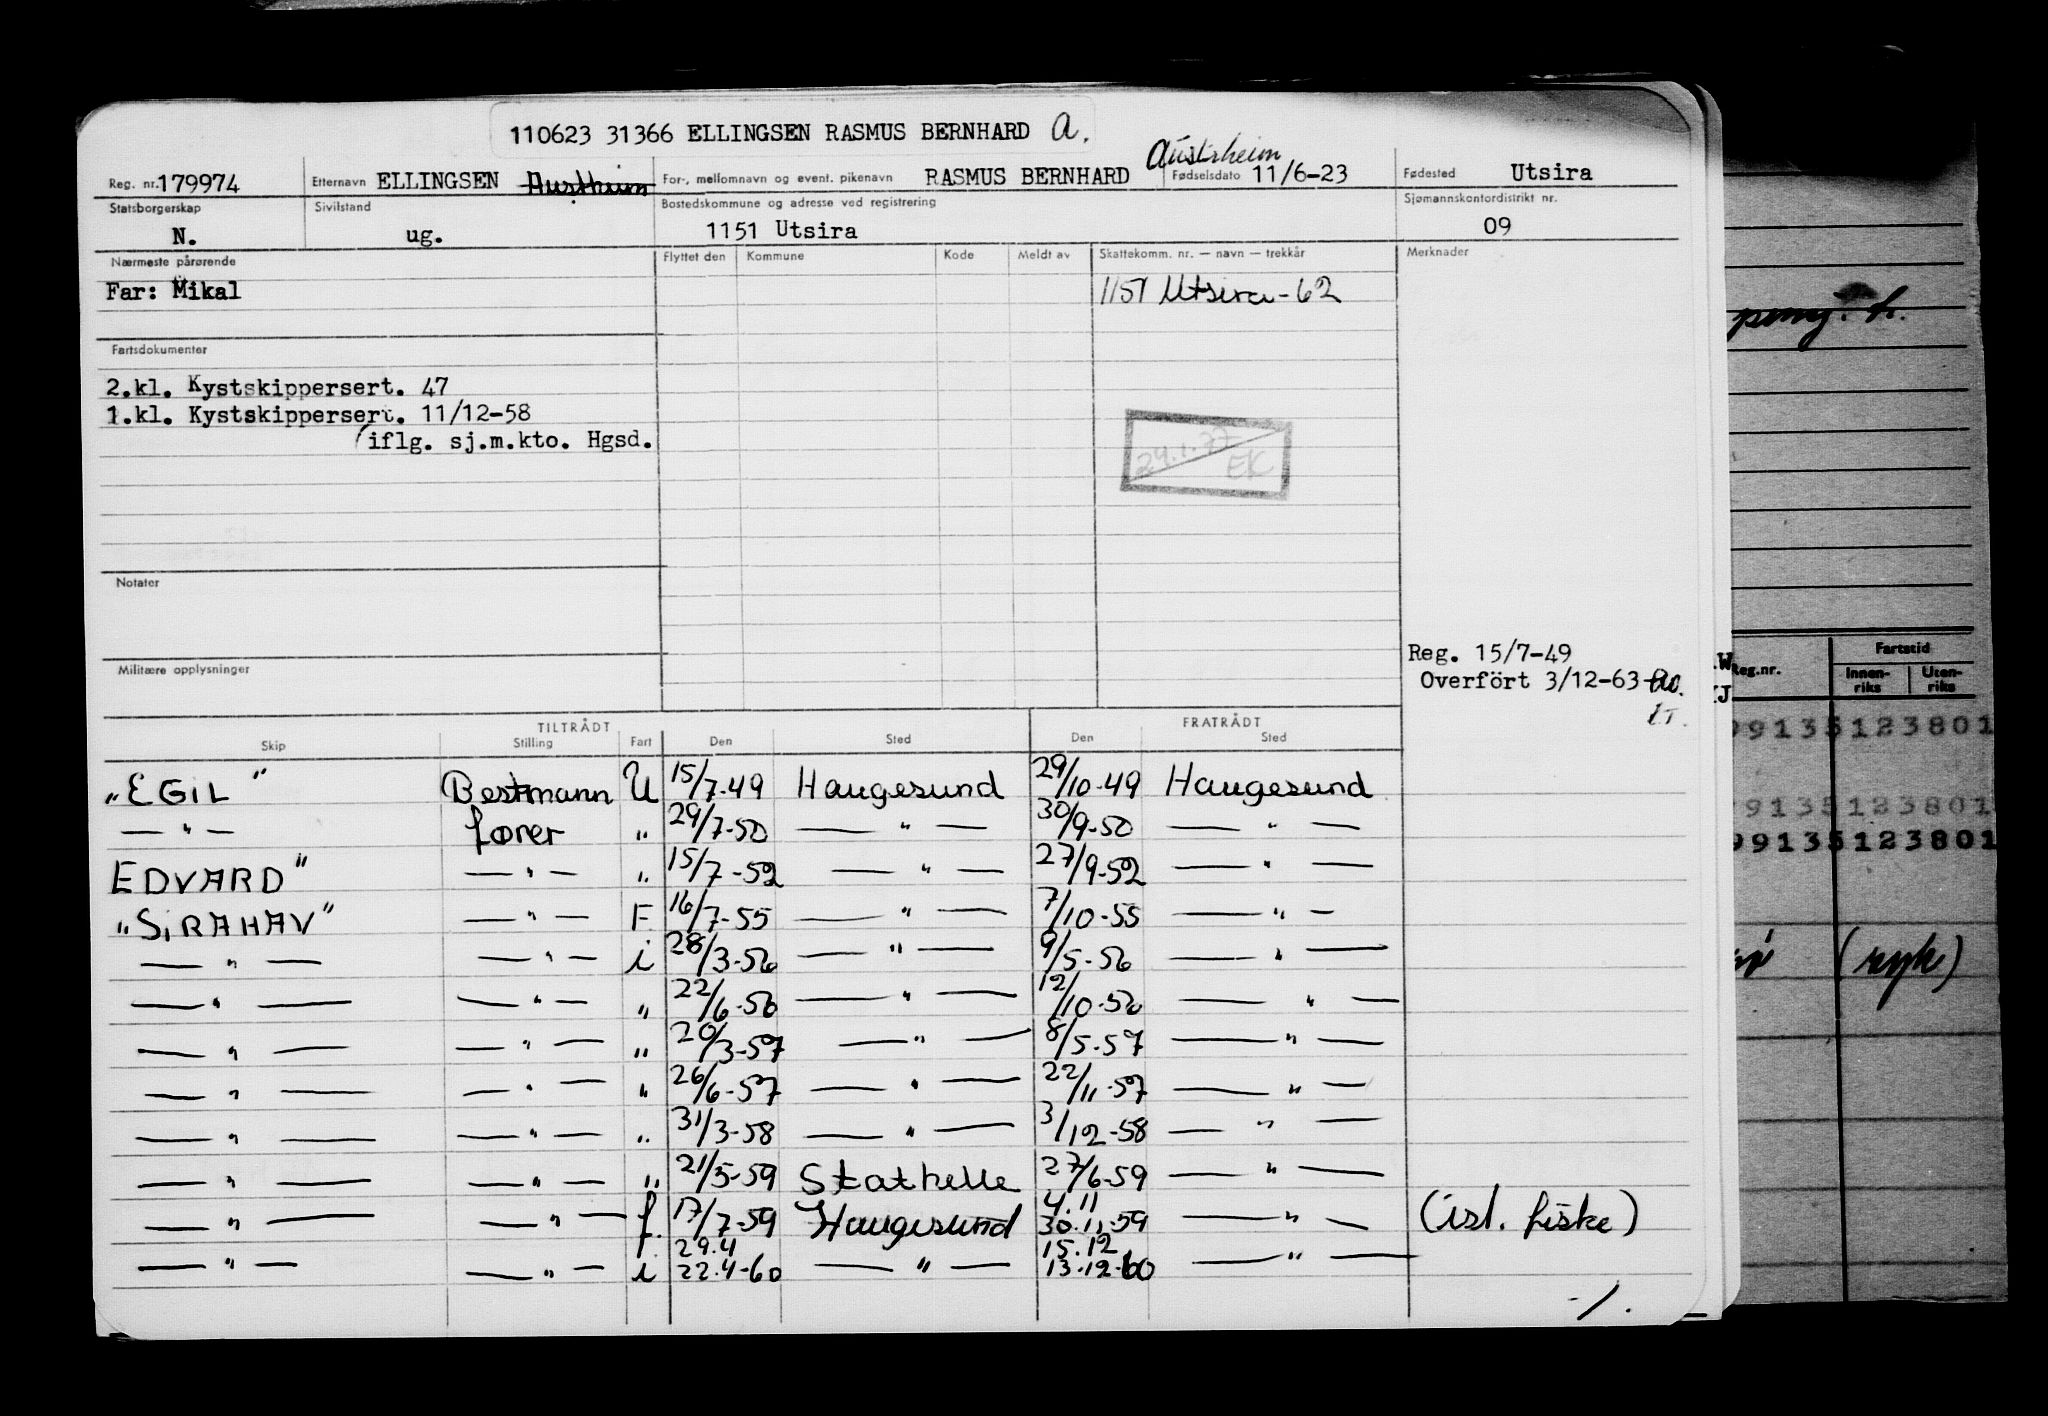 110623 31366 ELLINGSEN RASMUS BERNHARD A.
Reg. nr. 179974 Etternavn ELLINGSEN For-, mellomnavn og event. pikenavn RASMUS BERNHARD Austrheim Fødselsdato 11/6-23 Fødested Utsira
Statsborgerskap N. Sivilstand ug. Bostedskommune og adresse ved registrering 1151 Utsira Sjømannskontordistrikt nr. 09
Nærmeste pårørende Flyttet den Kommune Kode Meldt av Skattekomm. nr. — navn — trekkår Merknader
Far: Mikal 1151 Utsira - 62
Fartsdokumenter
2.kl. Kystskippersert. 47
1.kl. Kystskippersert. 11/12-58
(iflg. sj.m.kto. Hgsd.
29.1.77 EK
Notater
Militære opplysninger
Reg. 15/7-49
Overfört 3/12-63
TILTRÅDT FRATRÅDT
Skip Stilling Fart Den Sted Den Sted
"EGIL" Bestmann U 15/7-49 Haugesund 29/10-49 Haugesund
— " — fører " 29/7-50 — " — 30/9-50 — " —
EDVARD" — " — " 15/7-52 — " — 27/9-52 — " —
"SIRAHAV" — " — F 16/7-55 — " — 7/10-55 — " —
— " — — " — i 28/3-56 — " — 9/5-56 — " —
— " — — " — " 22/6-56 — " — 12/10-56 — " —
— " — — " — " 20/3-57 — " — 8/5-57 — " —
— " — — " — " 26/6-57 — " — 22/11-57 — " —
— " — — " — " 31/3-58 — " — 3/12-58 — " —
— " — — " — " 21/5-59 Stathelle 27/6-59 — " —
— " — — " — f. 17/7-59 Haugesund 4.11 30.11-59 — " — (isl. fiske)
— " — — " — i 29.4 22.4-60 — " — 15.12 13.12-60 — " —
-/.
Reg.nr. Fartstid
Innen-riks Uten-riks
99135123801
99135123801
99135123801